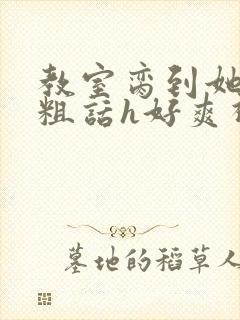 教室脔到她
粗话h好爽
墓地的稻草人